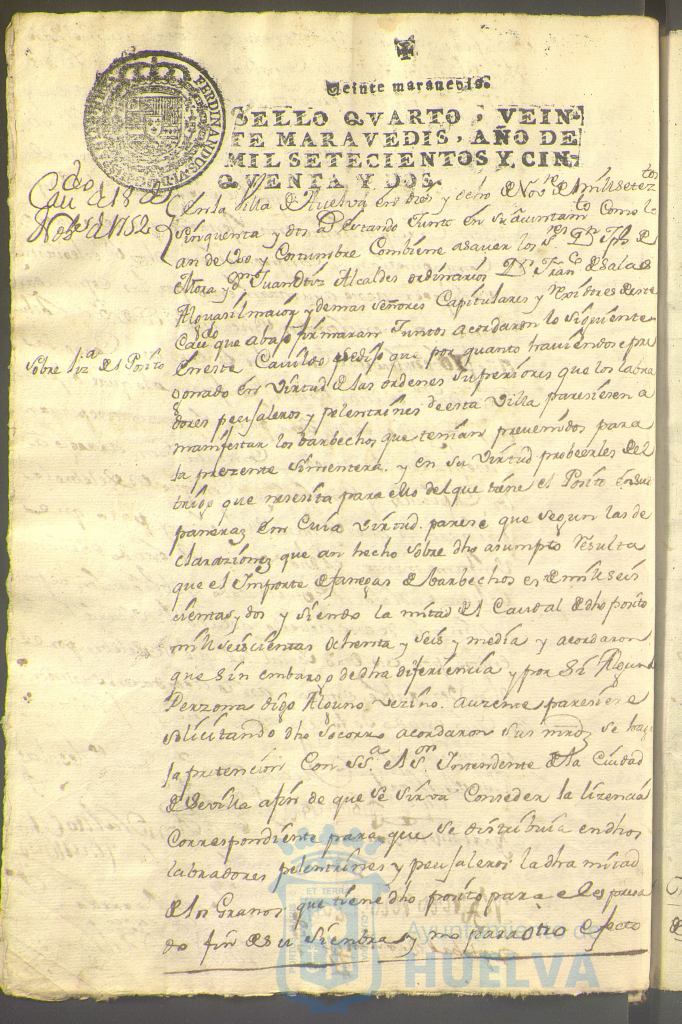 Veinte maravedis.
SELLO QVARTO, VEIN-
TE MARAVEDIS, AÑO DE
MIL SETECIENTOS Y CIN-
QVENTA Y DOS.
FERDINANDUS VI D G
Cavdo d 18 de
Nobre d 1752
En la Villa de Huelva en dies y ocho de Nove de mill seteztos
sinquenta y dos as estando Junto en su aiuntamto Como lo
an de Uso y Costumbre Combiene asauer los Ses Dn Jph de
Mora y Dn Juan Alcaldes ordinarios Dn Franco de Salas
Alguasil maior y demas señores Capitulares y Rexidores deste
Cavdo que abajo firmaran Juntos acordaron lo siguiente
Sobre liza del Posito
En este Cavildo se dijo que por quanto haviendose pre
gonado en virtud de las ordenes superiores que los labra
dores peujaleros y pelentrines de esta Villa paresiesen a
manifestar los barbechos que tenian prevenidos para
la prezente simentera. y en su virtud probeerles del
trigo que nesesita para ello del que tiene el Posito en sus
paneraz en Cuia virtud. parese que segun las de
claraziónez que an hecho sobre dho asumpto Resulta
que el Importe de fanegas de barbechos es de mill seis
cientas y dos y siendo la mitad del Caudal de dho posito
mill seiscientas ochenta y seis y media y acordaron
que sin embargo de dha diferiencia y por si Alguna
Perzona digo Alguno vezino. auzente paresiere
solicitando dho socorro acordaron sus mrdz se haga
la pretencion Con SSa el Sr Intendente de la Ciudad
de Sevilla a fin de que se sirva Conseder la lizencia
Correspondiente para que se distribuia en dhos
labradores pelentrines y peujaleros la dha mitad
de los Granos que tiene dho posito para el espresa
do fin de su siembra y no para otro efecto
Ayuntamiento
HUELVA